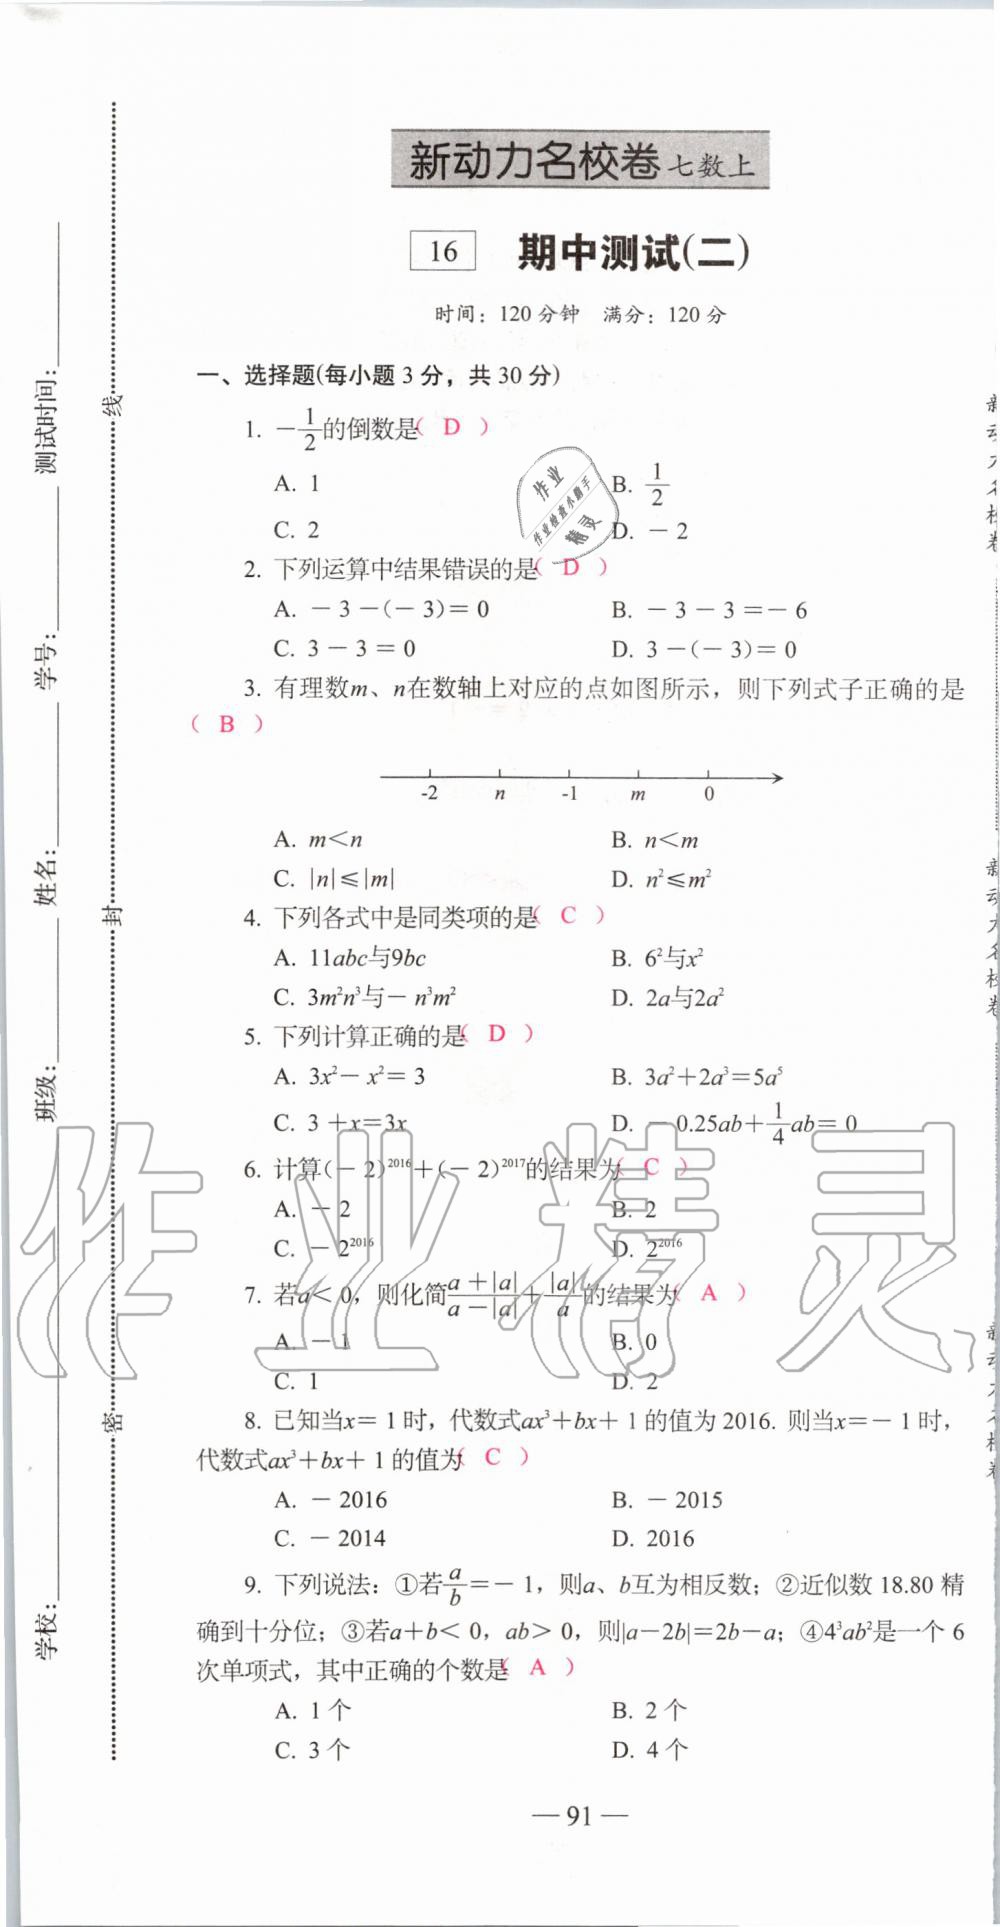 新动力名校卷 七数上
16 期中测试(二)
时间：120 分钟 满分：120 分
一、选择题(每小题 3 分，共 30 分)
1. －1/2的倒数是( D )
A. 1 B. 1/2
C. 2 D. －2
2. 下列运算中结果错误的是( D )
A. －3－(－3)＝0 B. －3－3＝－6
C. 3－3＝0 D. 3－(－3)＝0
3. 有理数m、n在数轴上对应的点如图所示，则下列式子正确的是
( B )
-2 n -1 m 0
A. m＜n B. n＜m
C. |n|≤|m| D. n²≤m²
4. 下列各式中是同类项的是( C )
A. 11abc与9bc B. 6²与x²
C. 3m²n³与－n³m² D. 2a与2a²
5. 下列计算正确的是( D )
A. 3x²－x²＝3 B. 3a²＋2a³＝5a⁵
C. 3＋x＝3x D. －0.25ab＋1/4ab＝0
6. 计算(－2)²⁰¹⁶＋(－2)²⁰¹⁷的结果为( C )
A. －2 B. 2
C. －2²⁰¹⁶ D. 2²⁰¹⁶
7. 若a＜0，则化简(a＋|a|)/(a－|a|)＋|a|/a的结果为( A )
A. －1 B. 0
C. 1 D. 2
8. 已知当x＝1时，代数式ax³＋bx＋1的值为2016. 则当x＝－1时，
代数式ax³＋bx＋1的值为( C )
A. －2016 B. －2015
C. －2014 D. 2016
9. 下列说法：①若a/b＝－1，则a、b互为相反数；②近似数18.80精
确到十分位；③若a＋b＜0，ab＞0，则|a－2b|＝2b－a；④4³ab²是一个6
次单项式，其中正确的个数是( A )
A. 1个 B. 2个
C. 3个 D. 4个
— 91 —
学校： 班级： 姓名： 学号： 测试时间：
密 封 线
作业
作业检查小助手
精灵
作业精灵